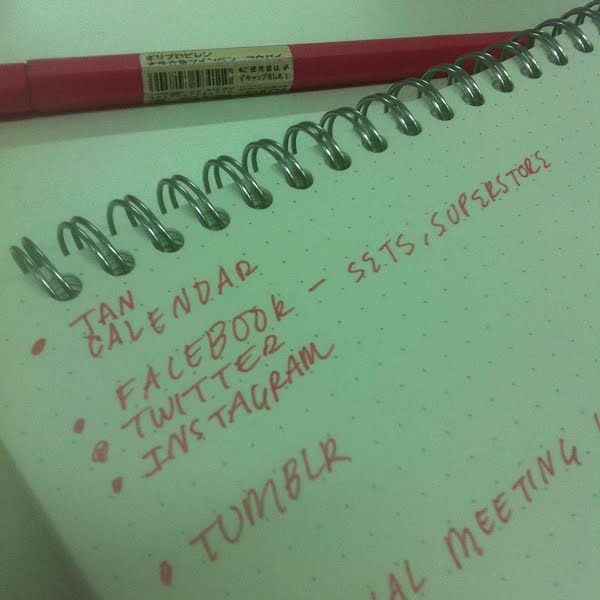 ポリプロピレン
JAN
CALENDAR
FACEBOOK - SETS, SUPERSTORE
TWITTER
INSTAGRAM
TUMBLR
MEETING